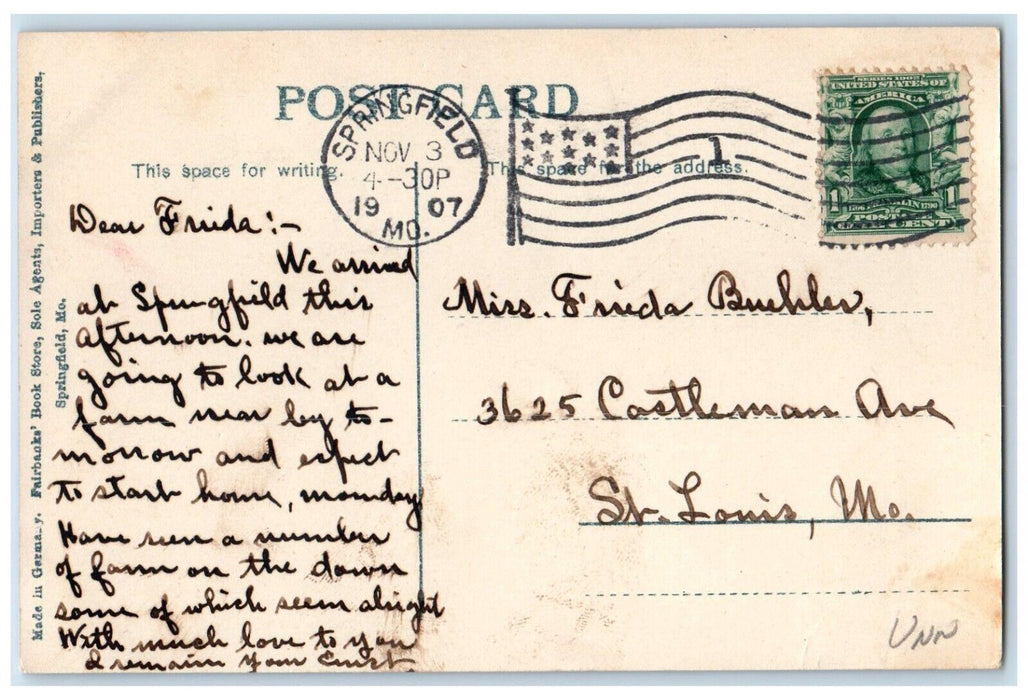 POST CARD
SPRINGFIELD
NOV 3
4-30P
19 07
MO.
1
SERIES 1902
UNITED STATES OF
AMERICA
1 1
FRANKLIN
POSTAGE
ONE CENT
This space for writing.
This space for the address.
Made in Germany. Fairbanks' Book Store, Sole Agents, Importers & Publishers,
Springfield, Mo.
Dear Frieda:-
We arrived
at Springfield this
afternoon. we are
going to look at a
farm near by to-
morrow and expect
to start home, monday
Have seen a number
of farm on the down
some of which seem alright
With much love to you
I remain your Ernst
Miss. Frieda Buehler,
3625 Castleman Ave
St. Louis, Mo.